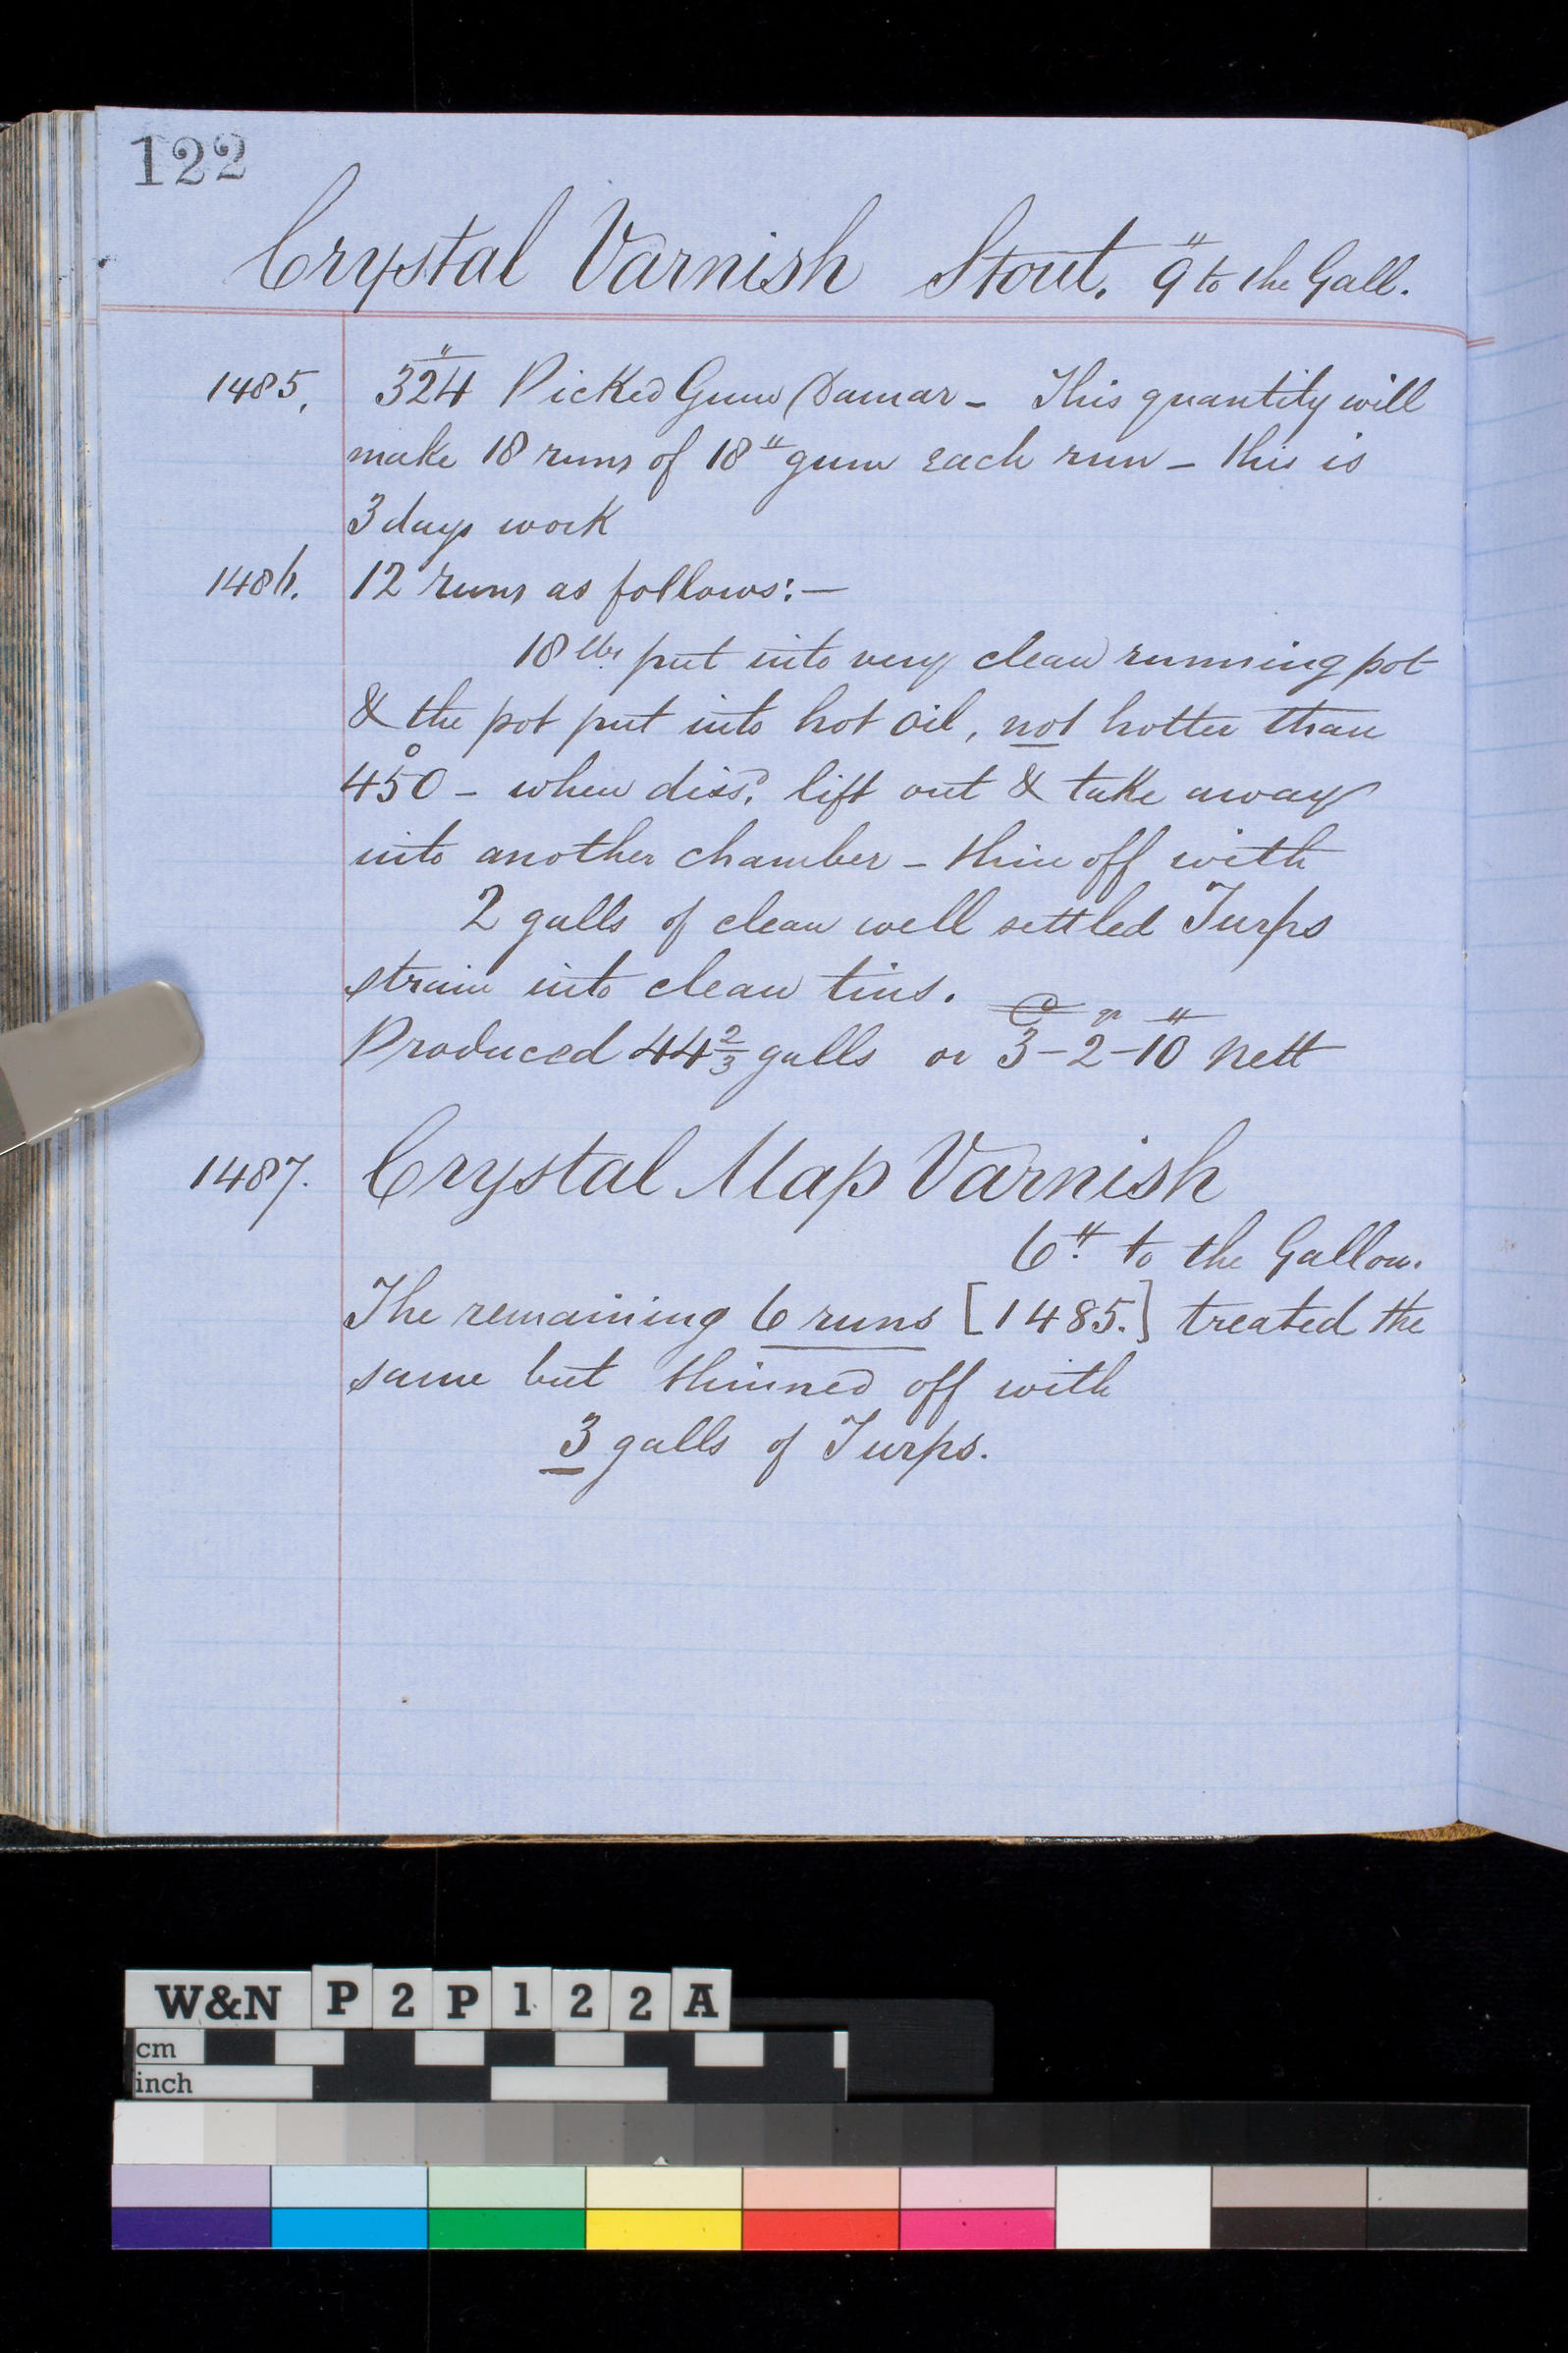 122
Crystal Varnish Stout. 9" to the Gall.
1485. 324" Picked Gum Damar – This quantity will
make 18 runs of 18" gum each run – this is
3 days work
1486. 12 runs as follows:—
18 lbs put into very clean running pot
& the pot put into hot oil, not hotter than
450° – when dissd. lift out & take away
into another chamber – thin off with
2 galls of clean well settled Turps
strain into clean tins.
Produced 44 2/3 galls or 3C–2qr–10" Nett
1487. Crystal Map Varnish
6" to the Gallon.
The remaining 6 runs [1485.] treated the
same but thinned off with
3 galls of Turps.
W&N P2P122A
cm
inch